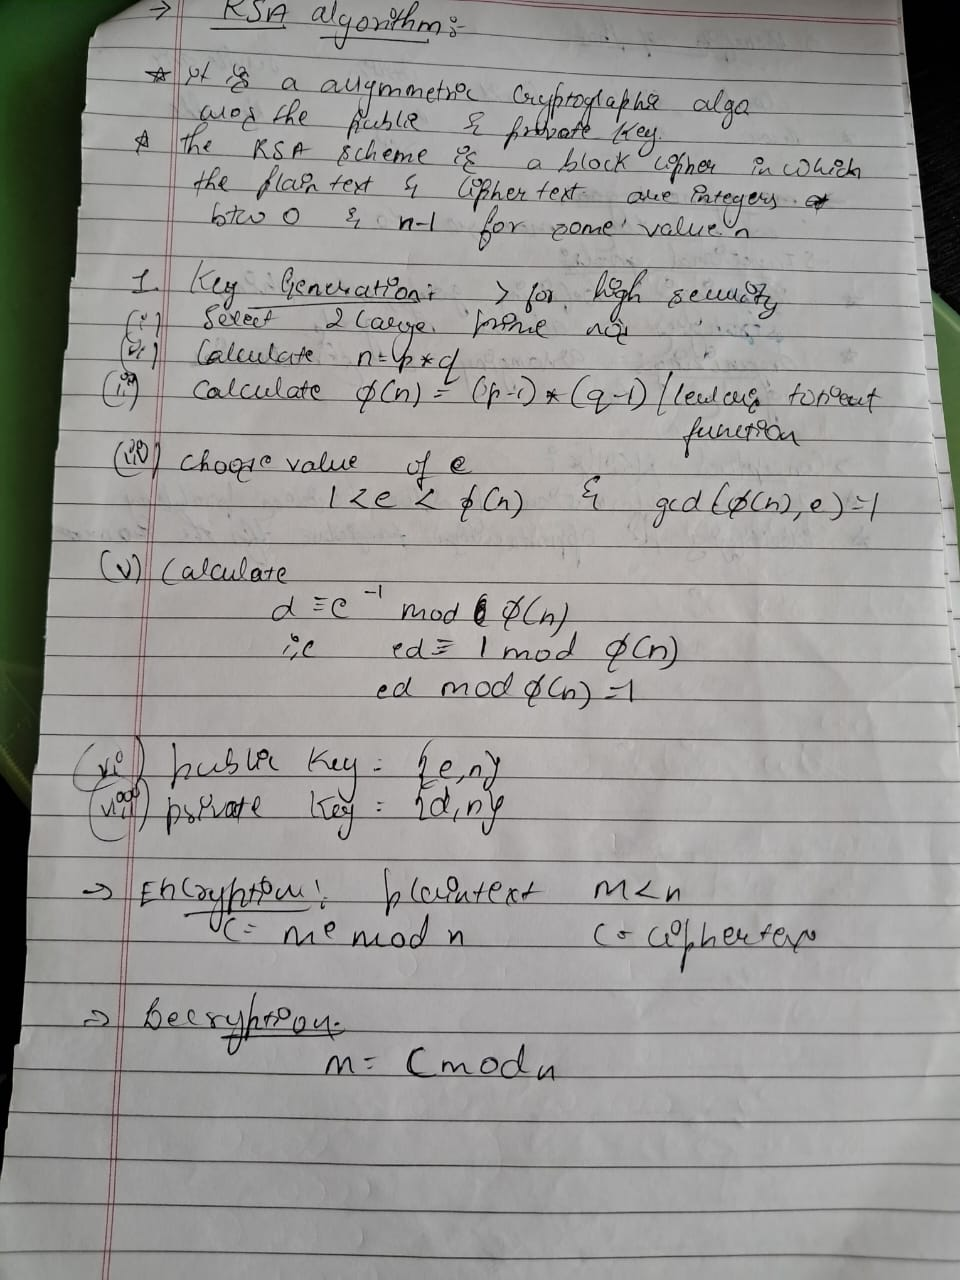 → RSA algorithm:-
* It is a asymmetric cryptographic algo
using the public & private key.
* the RSA scheme is a block cipher in which
the plain text & cipher text are integers
btw 0 & n-1 for some value n
1. Key Generation: > for high security
(i) Select 2 large prime no's
(ii) Calculate n = p * q
(iii) Calculate ϕ(n) = (p-1) * (q-1) / totient
function
(iv) choose value of e
1 < e < ϕ(n) & gcd (ϕ(n), e) = 1
(v) Calculate
d ≡ e⁻¹ mod ϕ(n)
i,e ed ≡ 1 mod ϕ(n)
ed mod ϕ(n) = 1
(vi) public key = {e,n}
(vii) private key = {d,n}
→ Encryption: plaintext m<n
C = me mod n C = ciphertex
⇒ Decryption:
m = C mod n